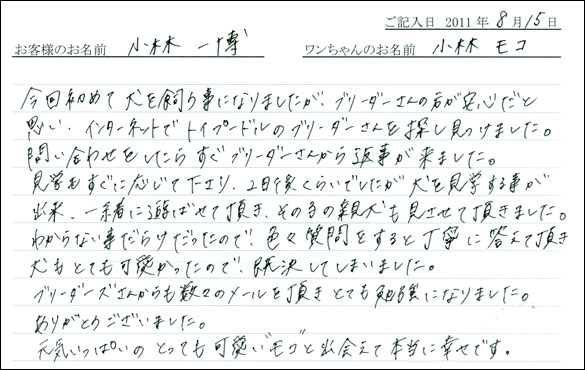 ご記入日 2011年8月15日
お客様のお名前 小林 一博 ワンちゃんのお名前 小林 モコ
今回初めて犬を飼う事になりましたが、ブリーダーさんの方が安心だと
思い、インターネットでトイプードルのブリーダーさんを探し見つけました。
問い合わせをしたらすぐブリーダーさんから返事が来ました。
見学もすぐに応じて下さり、2日後くらいでしたが犬を見学する事が
出来、一緒に遊ばせて頂き、その子の親犬も見させて頂きました。
わからない事だらけだったので、色々質問をすると丁寧に答えて頂き
犬もとても可愛かったので、即決してしまいました。
ブリーダーズさんからも数々のメールを頂きとても勉強になりました。
ありがとうございました。
元気いっぱいのとっても可愛い"モコ"と出会えて本当に幸せです。